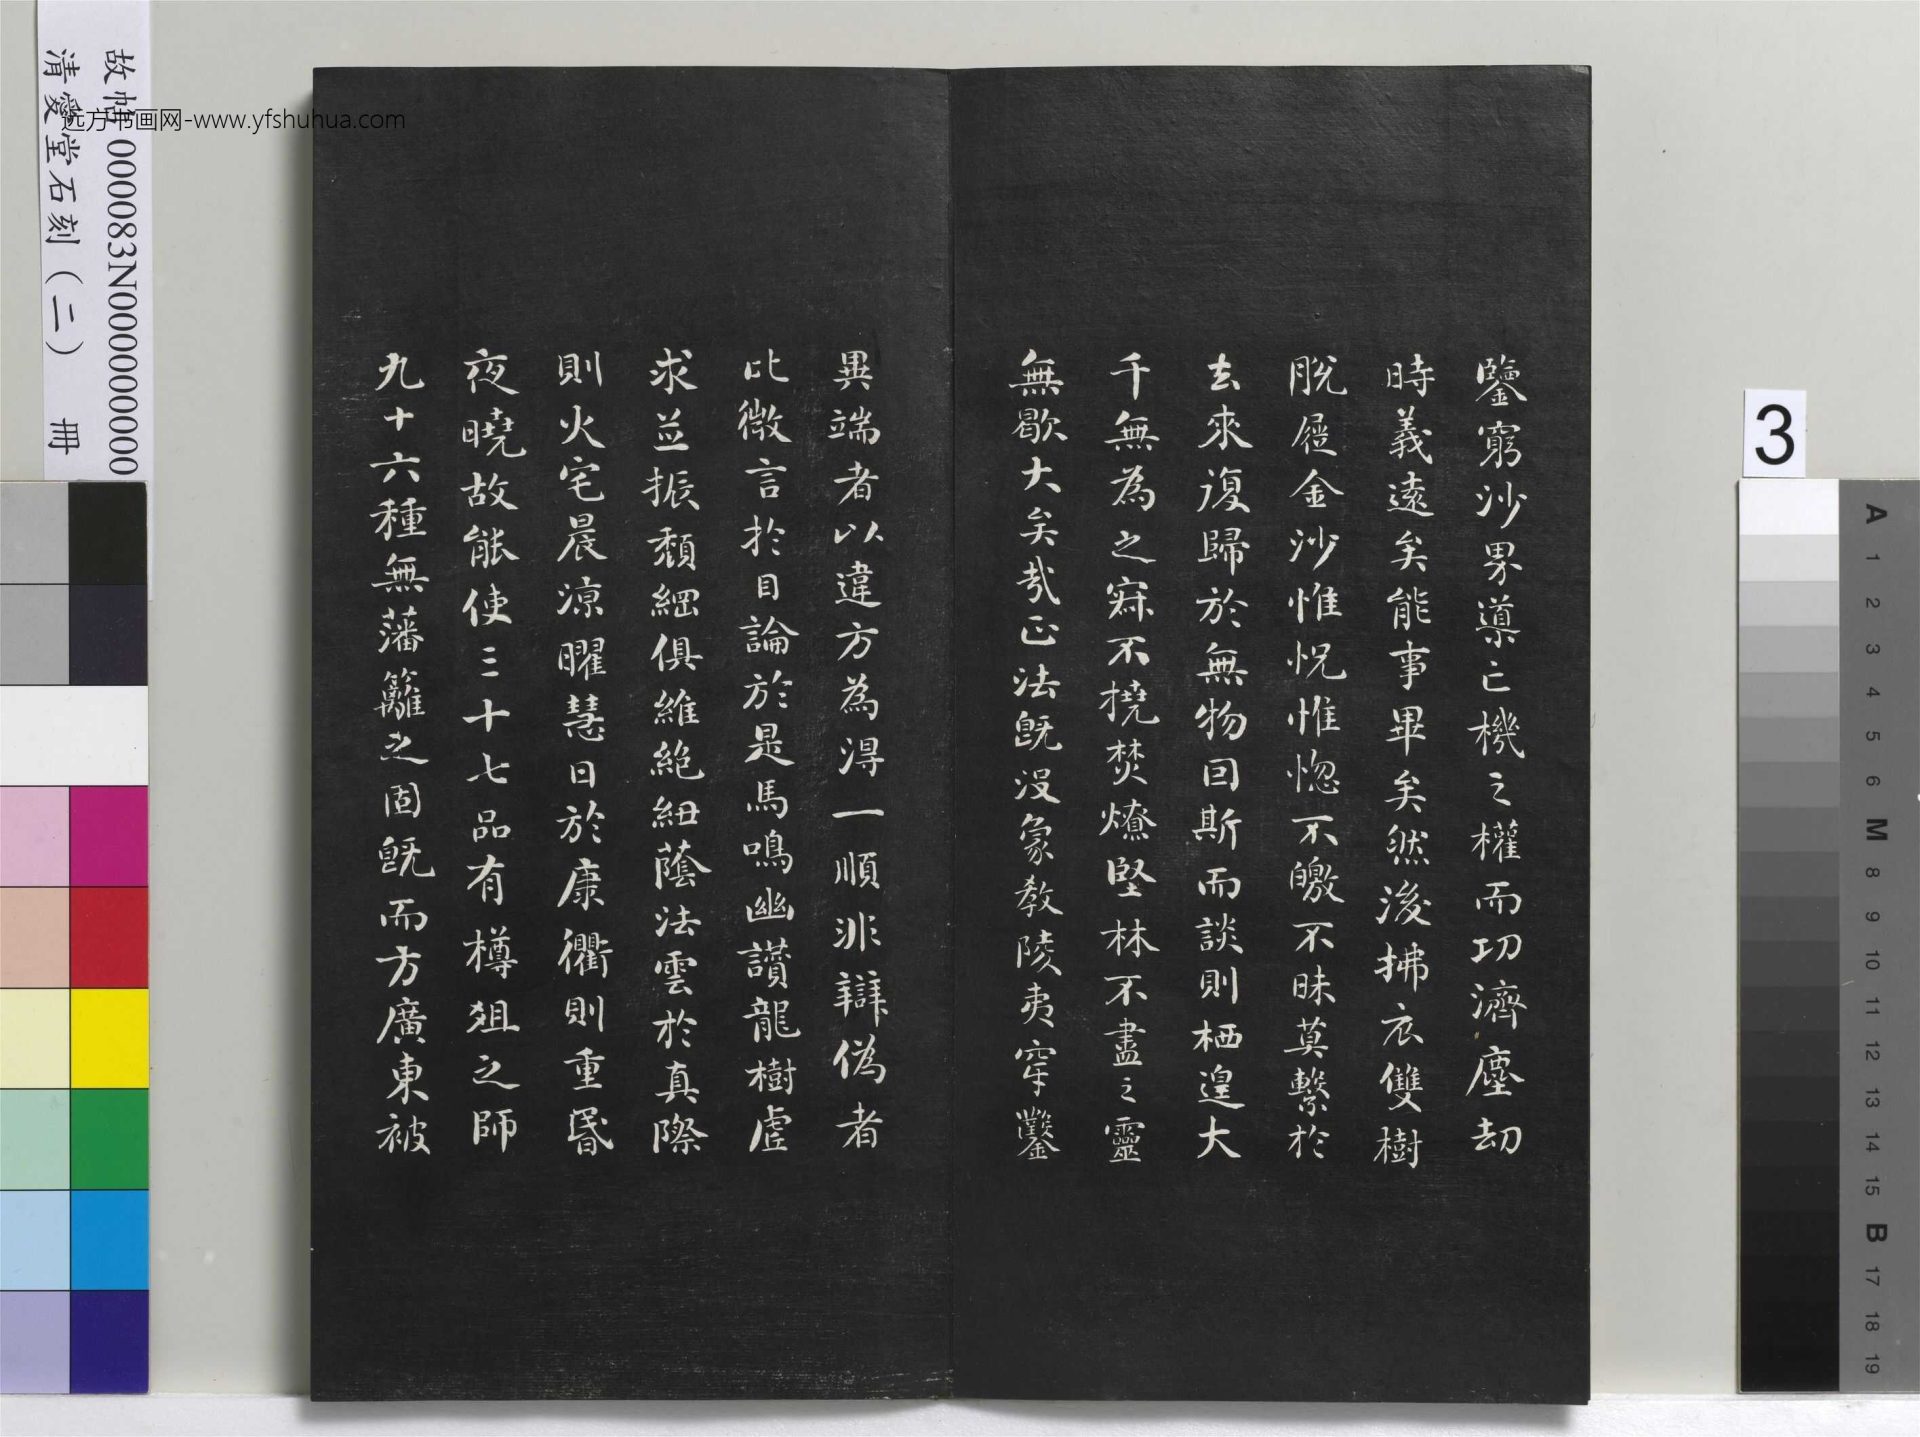 鑒窮沙界導亡機之權而功濟塵劫
時義遠矣能事畢矣然後拂衣雙樹
脫屣金沙惟怳惟惚不皦不昧莫繫於
去來復歸於無物因斯而談則栖遑大
千無為之寂不撓焚燎堅林不盡之靈
無歇大矣哉正法既沒象教陵夷穿鑿
異端者以違方為得一順非辯偽者
比微言於目論於是馬鳴幽讚龍樹虛
求並振頹綱俱維絕紐蔭法雲於真際
則火宅晨涼曜慧日於康衢則重昏
夜曉故能使三十七品有樽俎之師
九十六種無藩籬之固既而方廣東被
故帖 000083N000000000
清愛堂石刻（二） 冊
远方书画网-www.yfshuhua.com
3
A 1 2 3 4 5 6 M 8 9 10 11 12 13 14 15 B 17 18 19